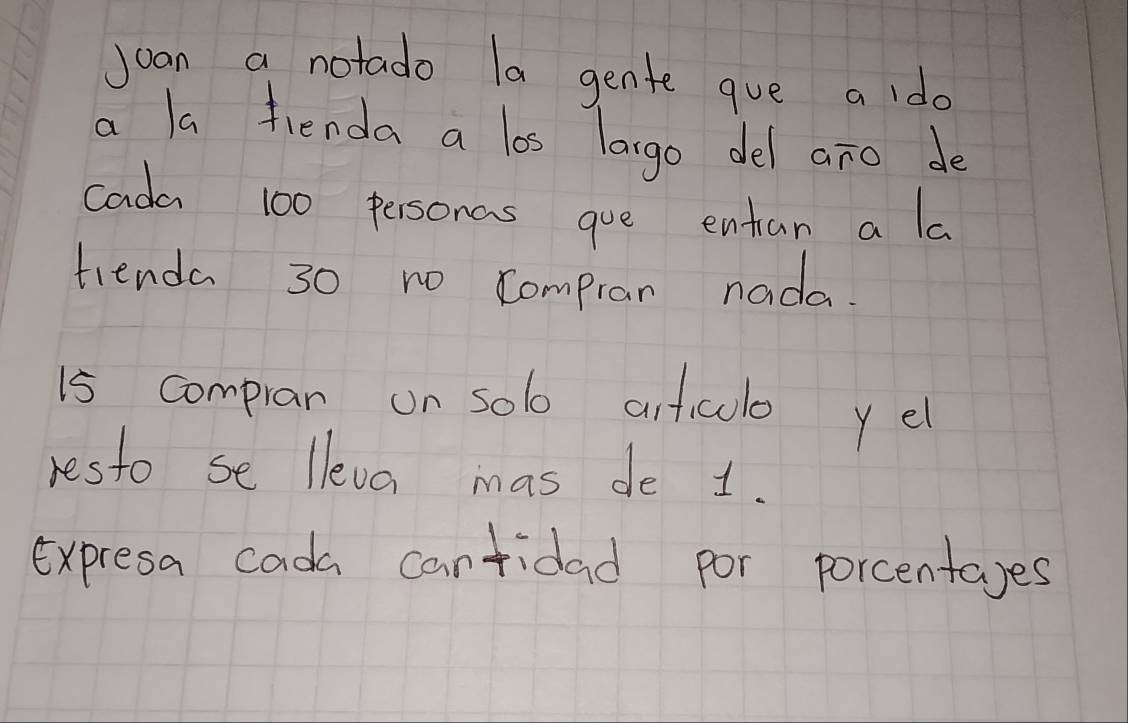 Juan a notado la gente que a ido
a la tienda a los largo del año de
cada 100 personas que entran a la
tienda 30 no compran nada.
15 compran un solo articulo y el
resto se lleva mas de 1.
Expresa cada cantidad por porcentajes